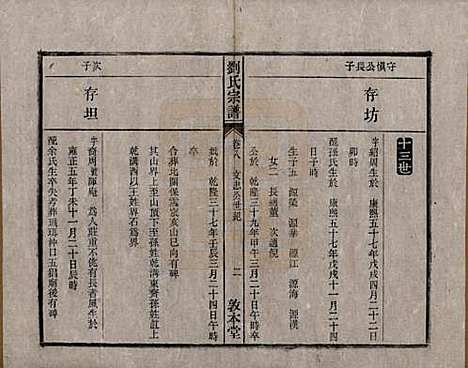 十三世
守愼公長子
存坊
字紹周生於 康熙五十七年戊戌四月二十二日
卯時
配孫氏生於 康熙五十七年戊戌十一月二十四
日子時
生子五 源榮 源華 源江 源海 源漢
女二 長適董 次適倪
公於 乾隆三十九年甲午三月二十日午時卒
劉氏宗譜
卷八 文忠公世紀
二
敦本堂
氏於 乾隆三十七年壬辰三月二十四日午時
卒
合葬北關保 家亥山已向有碑
其山界上至山頂下至孫姓缸上
乾溝西以王姓界石爲界
次子
存坦
字裔周號暉庵 爲人莊重不佻有長者風生於
雍正五年丁未十一月二十日辰時
配余氏生卒失考葬 塘沖口五猖廟後有碑